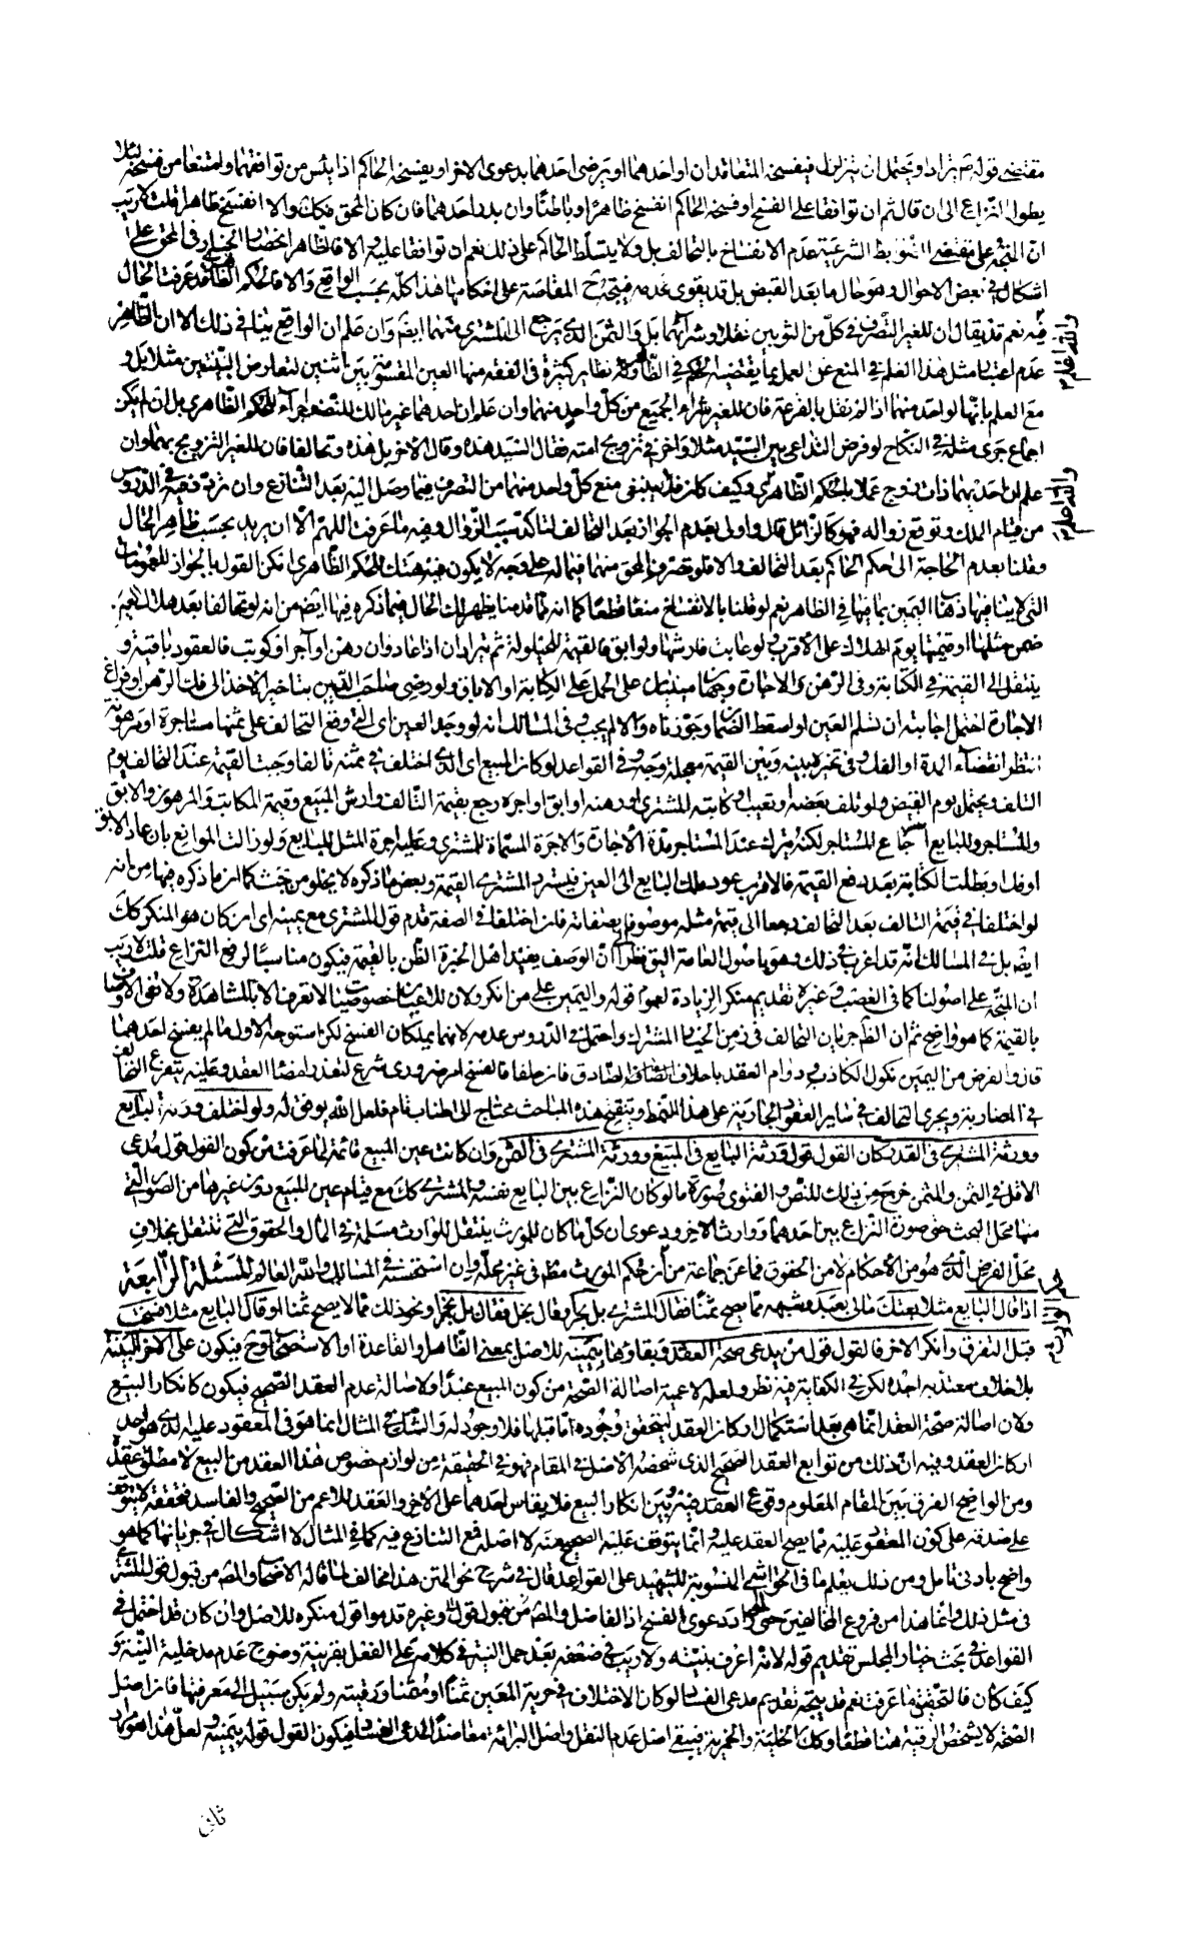 مقتضى قوله ثم يراد او يحتمل ان ينزل فيفسخه المتعاقدان او احدهما او يرضى احدهما بدعوى الاخر او يفسخه الحاكم اذا يئس من توافقهما وامتنعا من فسخه لئلا
يطول النزاع الى ان قال ثم ان توافقا على الفسخ او فسخه الحاكم انفسخ ظاهرا و باطنا وان بدر احدهما فان كان المحق فكك والا انفسخ ظاهرا قلت لا ريب
ان المتجه على مقتضى الضوابط الشرعية عدم الانفساخ بالتحالف بل ولا يتسلط الحاكم على ذلك نعم ان توافقا عليه والا فالظاهر انحصار الخيار في المحق على
اشكال في بعض الاحوال وهو حال ما بعد القبض بل قد يقوى عدمه فيتجه ح المقاصة على احكامها هذا كله بحسب الواقع والا فالحكم الظاهر قد عرفت الحال
فيه نعم قد يقال ان للغير التصرف في كل من الثوبين نقلا و شرائهما بل والثمن الذي يرجع الى المشترى منهما ايضا وان علم ان الواقع ينافي ذلك الا ان الظاهر
عدم اعتبار مثل هذا العلم في المنع عن العمل بما يقتضيه الحكم في الظاهر وله نظائر كثيرة في الفقه منها العين المقسومة بين اثنين لتعارض البينتين مثلا بل و
مع العلم بانها لواحد منهما اذا لم نقل بالقرعة فان للغير شراء الجميع من كل واحد منهما وان علم ان احدهما غير مالك للنصف اجراء للحكم الظاهرى بل ان لم يكن
اجماع جرى مثله في النكاح لو فرض التداعى بين السيد مثلا واخر في تزويج امته فقال السيد هذه وقال الاخر بل هذه وتحالفا فان للغير التزويج بهما وان
علم ان احديهما ذات زوج عملا بالحكم الظاهرى وكيف كان فلا ينبغى منع كل واحد منهما من التصرف فيما وصل اليه بعد التنازع وان تردد فيه في الدروس
من قيام الملك وتوقع زواله فهو كالزائل قال واولى بعدم الجواز بعد التحالف لتاكد سبب الزوال وفيه ما عرفت اللهم الا ان يريد بحسب ظاهر الحال
وقلنا بعدم الحاجة الى حكم الحاكم بعد التحالف والا فلو تصرف المحق منهما فيما له على وجه لا يكون فيه هتك للحكم الظاهرى امكن القول بالجواز للعمومات
التى لا ينافيها ذهاب اليمين بما فيها في الظاهر نعم لو قلنا بالانفساخ منعا قطعا كما انه مما قدمنا يظهر لك الحال فيما ذكره فيها ايضا من انه لو تحالفا بعد هلاك العين
ضمن مثلها او قيمتها يوم الهلاك على الاقرب ولو عابت فارشها ولو ابق فالقيمة للحيلولة ثم يترادان اذا عاد وان رهن او آجر او كوتب فالعقود باقية و
ينتقل الى القيمة في الكتابة وفي الرهن والاجارة وجهان مبنيان على الحمل على الكتابة او الاباق ولو رضى صاحب العين بتاخير الاخذ الى فك الرهن او فراغ
الاجارة احتمل اجابته ان تسلم العين او اسقط الضمان وجوزناه والا لم يجب وفي المسالك انه لو وجد العين اى التي وقع التحالف على ثمنها مستاجرة او مرهونة
انتظر انقضاء المدة او الفك وفي تخيره بينه وبين القيمة معجلة وجه وفي القواعد لو كان المبيع اى الذى اختلف في ثمنه تالفا وجبت القيمة عند التحالف يوم
التلف ويحتمل يوم القبض ولو تلف بعضه او تعيب او كاتبه المشترى او رهنه او ابق او اجره رجع بقيمة التالف وارش المبيع وقيمة المكاتب والمرهون والابق
والمستاجر وللبايع استرجاع المستاجر لكنه يترك عند المستاجر مدة الاجارة والاجرة المسماة للمشترى وعليه اجرة المثل للبايع ولو زالت الموانع بان عاد الابق
او فك او بطلت الكتابة بعد دفع القيمة فالاقرب عود ملك البايع الى العين فيسترد المشترى القيمة وبعض ما ذكره لا يخلو من بحث كما ان ما ذكره فيها من انه
لو اختلفا في قيمة التالف بعد التحالف رجعا الى قيمة مثله موصوفا بصفاته فان اختلفا في الصفة قدم قول المشترى مع يمينه اى ان كان هو المنكر كك
ايضا بل في المسالك انه قد اغرب في ذلك وهو باصول العامة اليق نظرا الى ان الوصف يفيد اهل الخبرة الظن بالقيمة فيكون مناسبا لرفع النزاع قلت لا ريب
ان المتجه على اصولنا كما في الغصب وغيره تقديم منكر الزيادة لعموم قوله واليمين على من انكر ولان للاعيان خصوصيات لا تعرف الا بالمشاهدة ولا تفى الاوصاف
بالقيمة كما هو واضح ثم ان الظ جريان التحالف في زمن الخيار المشترك واحتمل في الدروس عدمه لانهما يملكان الفسخ لكن استوجه الاول ما لم يفسخ احدهما
قال والغرض من اليمين نكول الكاذب ودوام العقد باحلاف الصادق فان حلفا فالفسخ امر ضرورى شرع لتعذر امضاء العقد وعليه يتفرع التحالف
في المضاربة ويجرى التحالف في ساير العقود الجارية على هذا النمط وتنقيح هذه المباحث محتاج الى اطناب تام فلعل الله يوفق له ولو اختلف ورثة البايع
وورثة المشترى في القدر كان القول قول ورثة البايع في المبيع وورثة المشترى في الثمن وان كانت عين المبيع قائمة لما عرفت من كون القول قول مدعى
الاقل في الثمن والمثمن خرج من ذلك للنص والفتوى صورة ما لو كان النزاع بين البايع نفسه والمشترى كك مع قيام عين المبيع دون غيرها من الصور التي
منها محل البحث حتى صورة النزاع بين احدهما ووارث الاخر ودعوى ان كل ما كان للمورث ينتقل للوارث مسلمة في المال والحقوق التي تنتقل بخلاف
محل الفرض الذى هو من الاحكام لا من الحقوق فما عن جماعة من ان حكم المورث مطرد في غير محله وان استحسنه في المسالك والله العالم المسئلة الرابعة
اذا قال البايع مثلا بعتك مالى بعبد وشبهه مما يصح ثمنا فقال المشترى بل بحر او قال بخل فقال بل بخمر ونحو ذلك مما لا يصح ثمنا او قال البايع مثلا فسخت
قبل التفرق وانكر الاخر فالقول قول من يدعى صحة العقد وبقاؤها بيمينه للاصل بمعنى الظاهر والقاعدة او الاستصحاب وح فيكون على الاخر البينة
بلا خلاف معتد به اجده لكن في الكفاية فيه نظر ولعله لاعمية اصالة الصحة من كون المبيع عبدا ولاصالة عدم العقد الصحيح فيكون كانكار البيع
ولان اصالة صحة العقد انما هى بعد استكمال اركان العقد ليتحقق وجوده اما قبلها فلا وجود له والشك في المثال انما هو في المعقود عليه الذى هو احد
اركان العقد وفيه ان ذلك من توابع العقد الصحيح الذى شخصه الاصل في المقام فهو في الحقيقة من لوازم خصوص هذا العقد من البيع لا مطلق عقد
ومن الواضح الفرق بين المقام المعلوم وقوع العقد فيه وبين انكار البيع فلا يقاس احدهما على الاخر والعقد للاعم من الصحيح والفاسد فتحققه لا يتوقف
على صدقه على كون المعقود عليه مما يصح العقد عليه وانما يتوقف عليه الصحيح منه لا اصله فمع التنازع فيه كما في المثال لا اشكال في جريانها كما هو
واضح بادنى تامل ومن ذلك يعلم ما في الحواشى المنسوبة للشهيد على القواعد قال في شرح نحو المتن هذا مخالف لما قاله الاصحاب والمصنف من قبول قول المشترى
في مثل ذلك وانما هذا من فروع المخالفين دعوى الفسخ اذ الفاضل والمصنف وغيره قدموا قول منكره للاصل وان كان قد احتمل في
القواعد في بحث خيار المجلس تقديم قوله لانه اعرف بنيته ولا ريب في ضعفه بعد حمل النية في كلامه على الفعل بقرينة وضوح عدم مدخلية النية و
كيف كان فالتحقيق ما عرفت نعم قد يتجه تقديم مدعى الفساد لو كان الاختلاف في حرية المعين ثمنا او مثمنا ورقيته ولم يكن سبيل الى معرفتها فان اصل
الصحة لا يشخص الرقية هنا قطعا وكك الخلية والخمرية فيبقى اصل عدم النقل واصل البرائة معاضدا لمدعى الفساد فيكون القول قوله بيمينه ولعل هذا هو مراد
والله اعلم
والله اعلم
ثانى